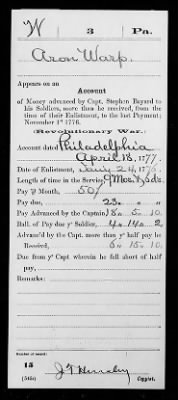 W | 3 | Pa.
Aron Warp.
Appears on an
Account
of Money advanced by Capt. Stephen Bayard to
his Soldiers, more than he received, from the
time of their Enlistment, to the last Payment;
November 1st 1776.
(Revolutionary War.)
Account dated Philadelphia
April 18, 1777.
Date of Enlistment, 24, 1776
Length of time in the Service, 9 Mos.
Pay ₱ Month, 50/
Pay due, 23 " "
Pay Advanced by the Captain 18 " 5 " 10
Ball. of Pay due ₱ Soldier, 4 " 14 " 2
Advanc'd by the Capt. more than ye half pay he
Received, 6 " 15 " 10
Due from ye Capt wherein he fell short of half
pay,
Remarks:
Number of record:
15
(545c)
Copyist.